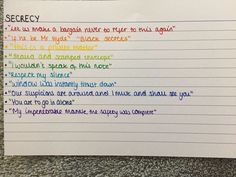 SECRECY
• "Let us make a bargain never to refer to this again"
• "If he be Mr Hyde" "Black secrets"
• "This is a private matter"
• "and stamped envelope"
• "I wouldn't speak of this note"
• "Respect my silence"
• "window was instantly thrust down"
• "Our suspicions are aroused and I must and shall see you"
• "You are to go in alone"
• "My impenetrable mantle the safety was complete"